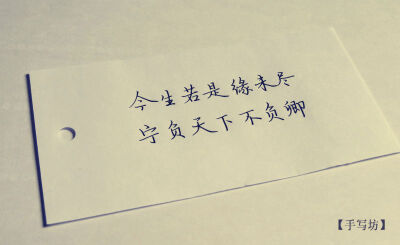 今生若是缘未尽
宁负天下不负卿
【手写坊】